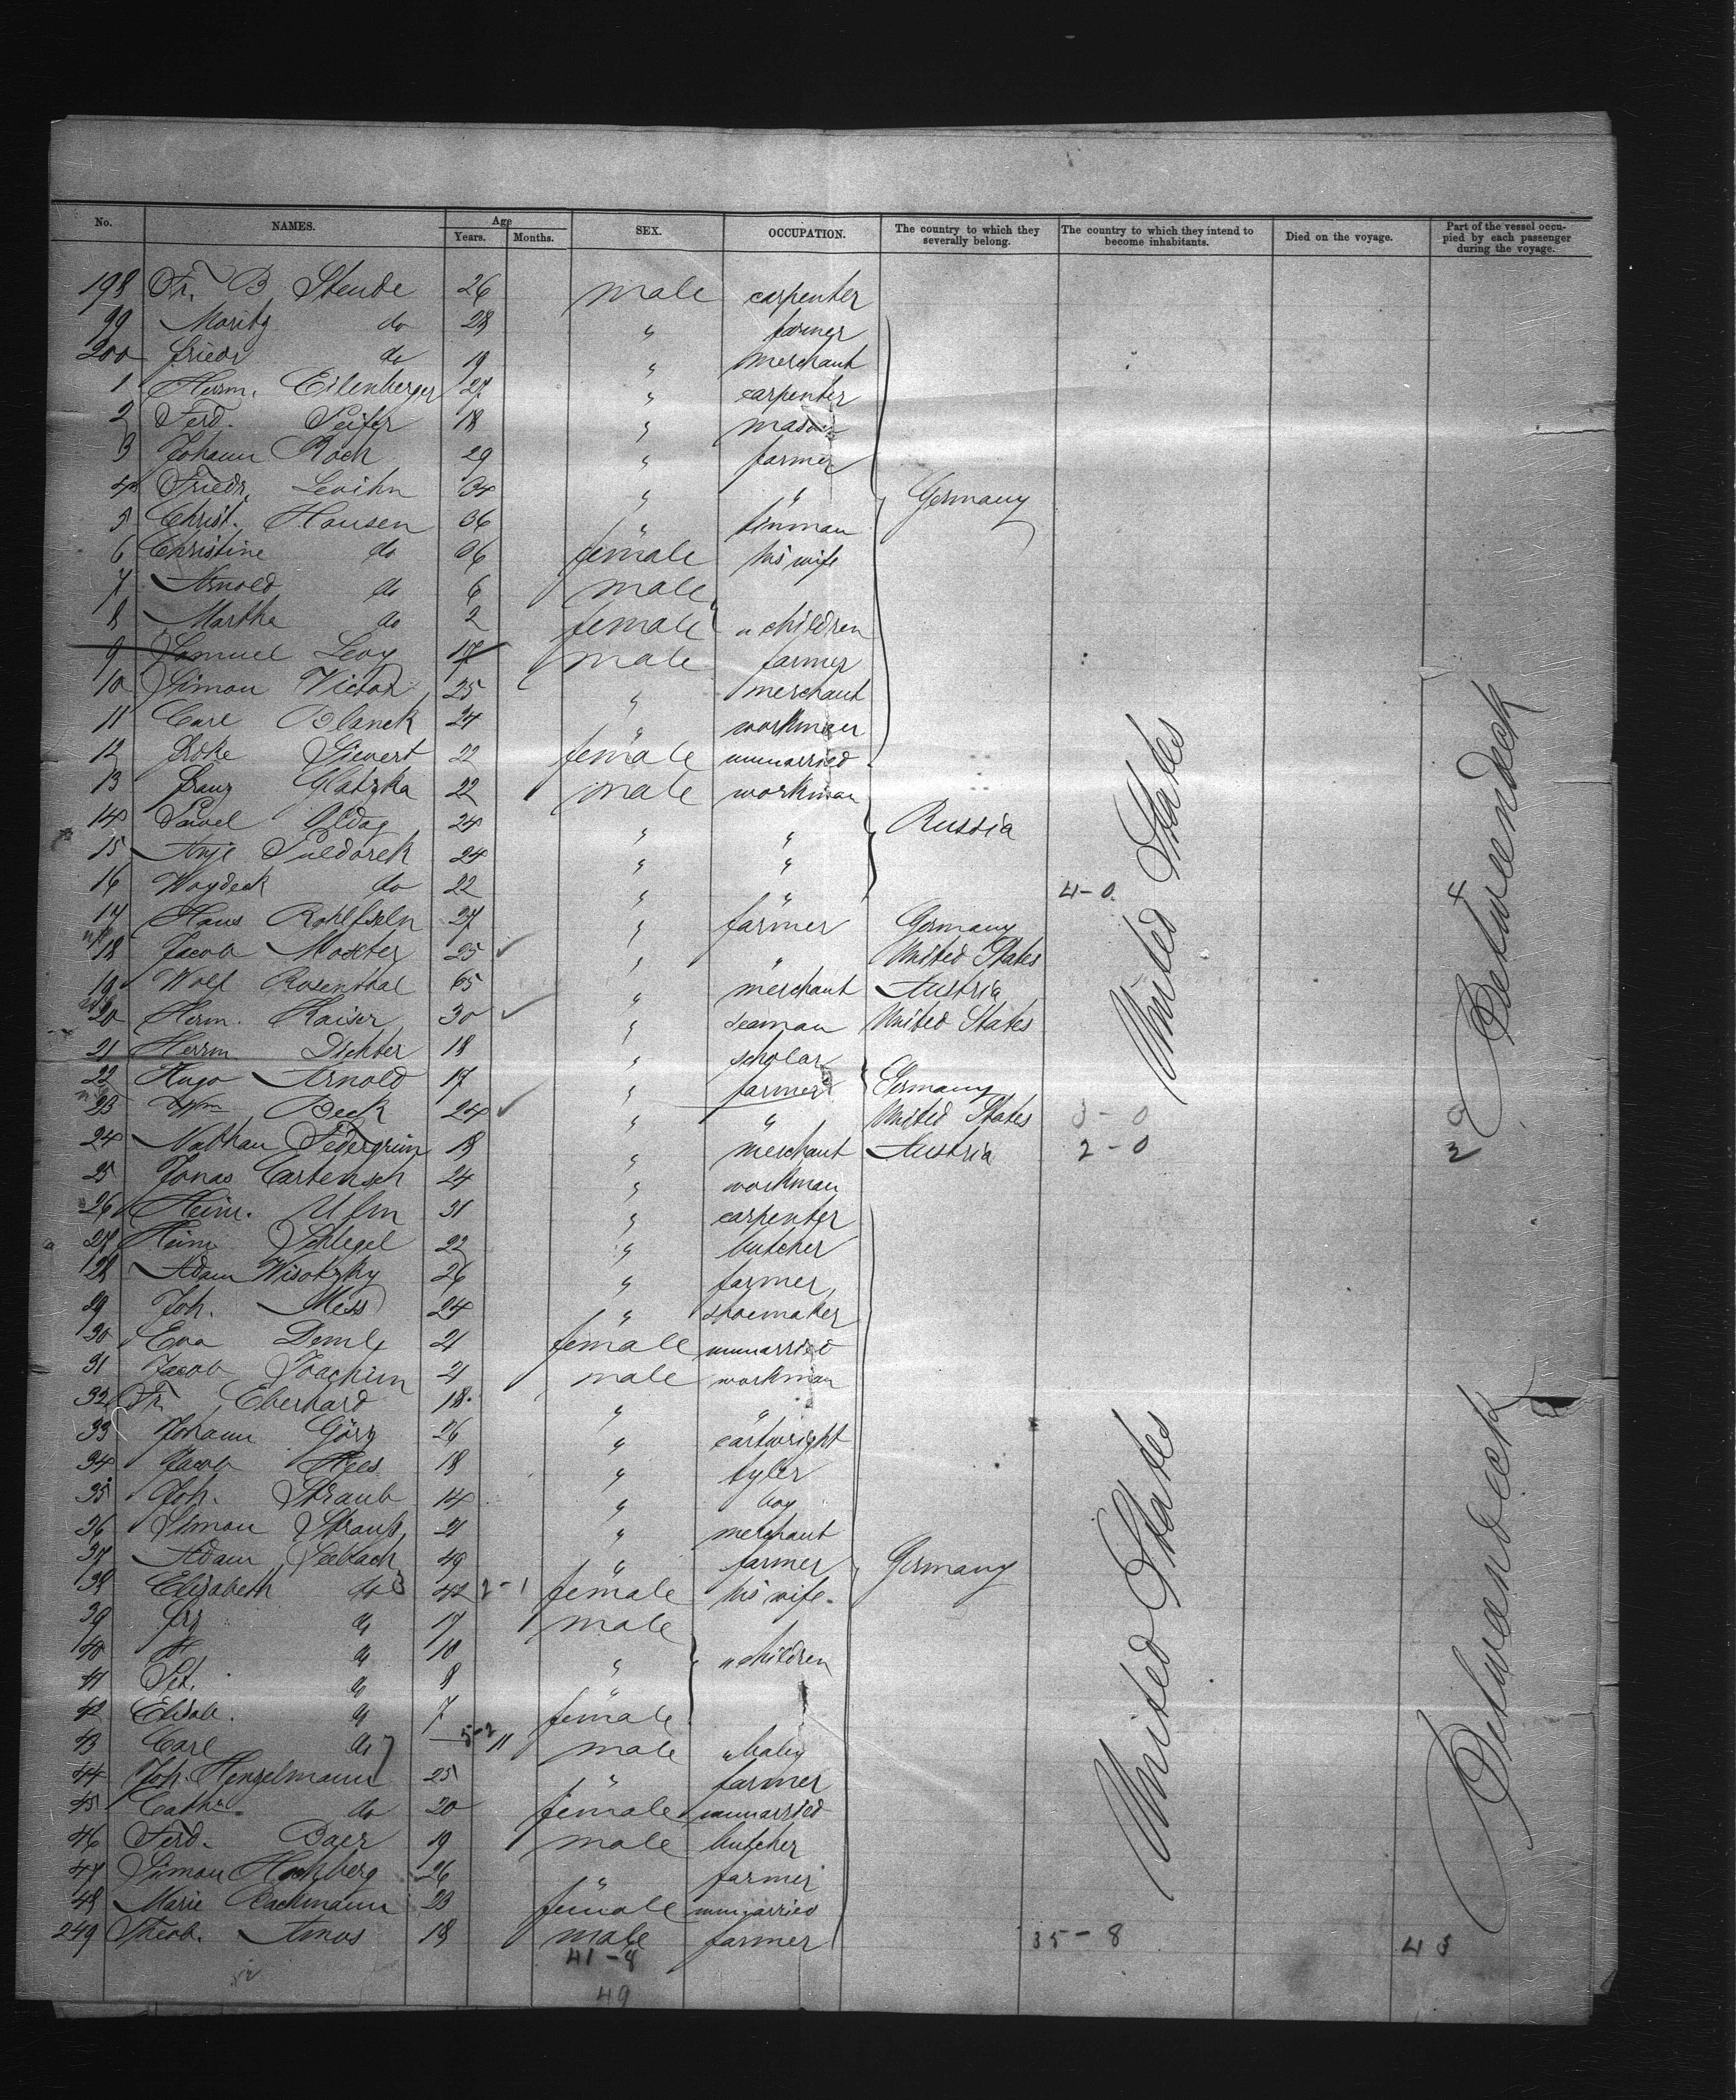 No. NAMES. Age Years. Months. SEX. OCCUPATION. The country to which they severally belong. The country to which they intend to become inhabitants. Died on the voyage. Part of the vessel occupied by each passenger during the voyage.
198 Fr. B Steude 26 male carpenter
99 Moritz do 28 " farmer
200 Friedr do 19 " merchant
1 Herm. Eilenberger 27 " carpenter
2 Ferd. Seifer 18 " mason
3 Johann Koch 29 " farmer
4 Friedr. Levihn 34 " " Germany
5 Christ. Hansen 36 " tinman
6 Christine do 36 female his wife
7 Arnold do 6 male
8 Martha do 2 female " children
9 Samuel Levy 17 male farmer
10 Simon Victor 25 " merchant
11 Carl Blanck 24 " workman
12 Sievert 22 female unmarried
13 Franz Glatzka 22 male workman
14 Pawel Oldag 24 " " Russia
15 Anje 24 " "
16 Woydeck do 22 " " 4-0
17 Hans 27 " farmer Germany
18 Jacob Moxter 25 " " United States
19 Wolf Rosenthal 65 " merchant Austria
20 Herm. Kaiser 30 " seaman United States
21 Herrm Dichter 18 " scholar
22 Hugo Arnold 17 " farmer Germany
23 Wm Beck 24 " " United States 3-0
24 Nathan 18 " merchant Austria 2-0 2
25 Jonas Cartensch 24 " workman
26 Heinr. Ulm 31 " carpenter
27 Heinr Schlegel 22 " butcher
28 Adam Wisotzky 26 " farmer
29 Joh. Mess 24 " shoemaker
30 Eva 21 female unmarried
31 Jacob Joachim 21 male workman
32 Fr Eberhard 18 " "
33 Johann Görz 26 " cartwright
34 Jacob Hees 18 " tyler
35 Joh. Straub 14 " boy
36 Simon Strauß 21 " merchant
37 Adam Seebach 49 " farmer Germany
38 Elisabeth do 42 2-1 female his wife
39 Frz do 17 male
40 H. do 10 " " children
41 Pet. do 8 "
42 Elisab. do 7 female
43 Carl do — 5-2 11 male " baby
44 Joh. Hengelmann 25 " farmer
45 Cath. do 20 female unmarried
46 Ferd. Baer 19 male butcher
47 Simon Hochberg 26 " farmer
48 Marie Bachmann 23 female unmarried
249 Theob. Amos 18 male farmer 35-8 43
41-8
49
United States
Betweendeck
United States
Betweendeck